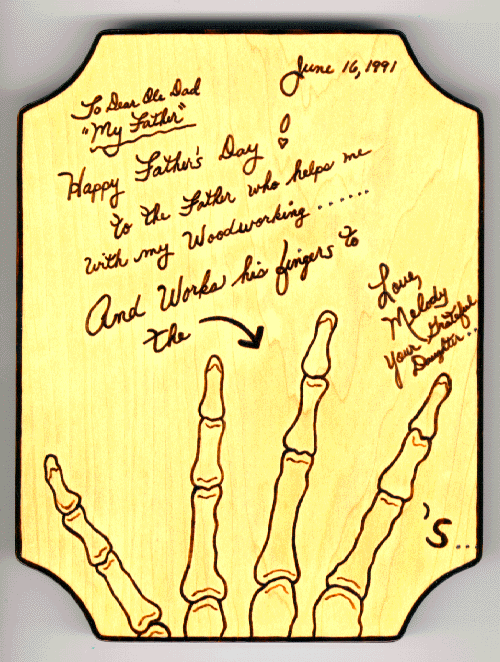 June 16, 1991
To Dear Ole Dad
"My Father"
Happy Father's Day!
to the Father who helps me
with my Woodworking.......
And Works his fingers to
the
Love,
Melody
Your Grateful
Daughter...
'S...